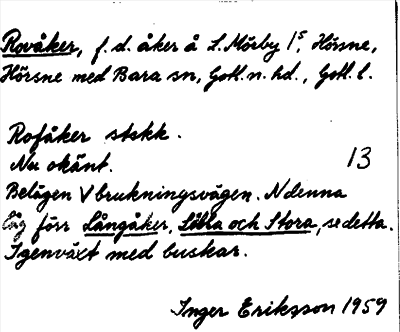 Rovåker, f. d. åker å L. Mörby 1⁵, Hörsne,
Hörsne med Bara sn, Gotl. n. hd., Gotl. l.
Rofåker stskk.
Nu okänt. 13
Belägen V brukningsvägen. N denna
låg förr Långåker, Lilla och Stora, se detta.
Igenväxt med buskar.
Inger Eriksson 1959